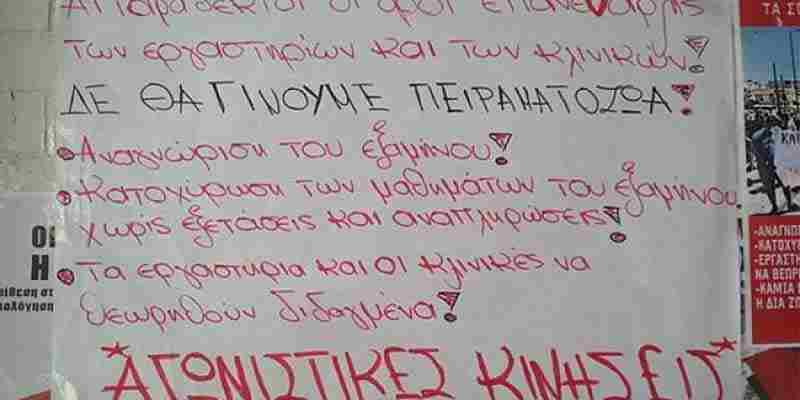 Απαράδεκτοι οι όροι επανέναρξης
των εργαστηρίων και των κλινικών!
ΔΕ ΘΑ ΓΙΝΟΥΜΕ ΠΕΙΡΑΜΑΤΟΖΩΑ!
• Αναγνώριση του εξαμήνου!
• Κατοχύρωση των μαθημάτων του εξαμήνου
χωρίς εξετάσεις και αναπληρώσεις!
• Τα εργαστύρια και οι κλινικές να
θεωρηθούν διδαγμένα!
*ΑΓΩΝΙΣΤΙΚΕΣ ΚΙΝΗΣΕΙΣ*
ΟΙ
Η
ίθεση στ
ολόγηση
ΤΑ ΣΕ
-ΑΝΑΓΝΩ
-ΚΑΤΟΧΥ
-ΕΡΓΑΣΤΗ
ΝΑ ΘΕΩΡΗ
-ΚΑΜΙΑ
Η ΔΙΑ ΖΩ